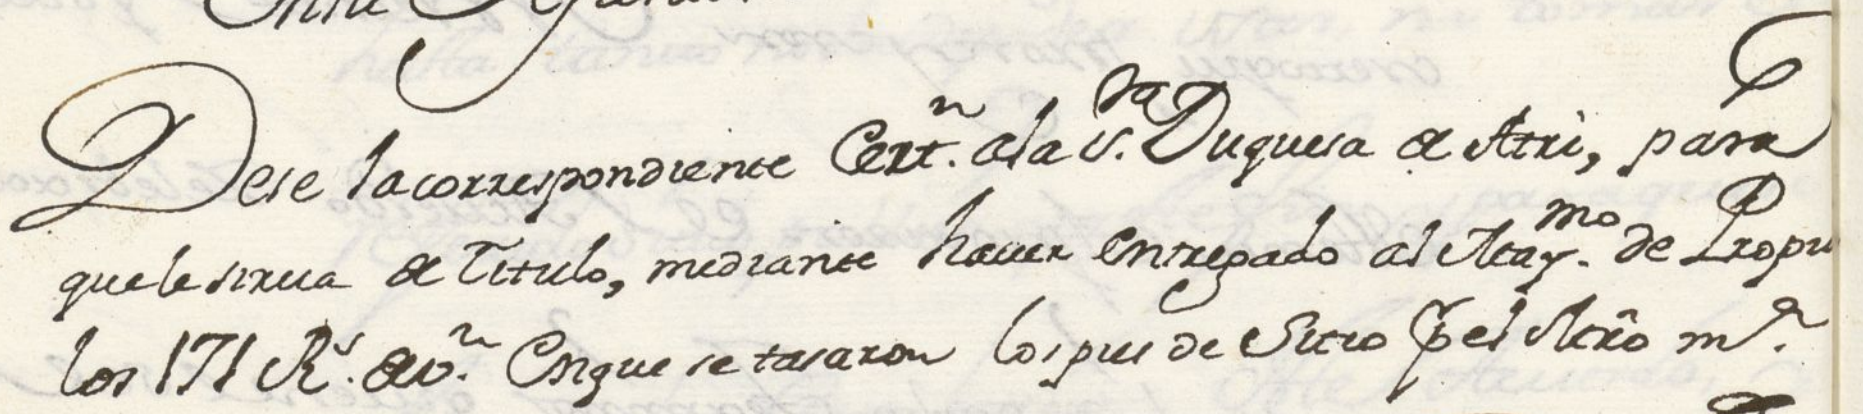 Dese la correspondiente Cert.n a la S.ra Duquesa de Atri, para
que le sirva de Titulo, mediante haver entregado al May.mo de Propi
los 171 R.s de v.n en que se tasaron los pies de Sitio p.r el Mrô m.r